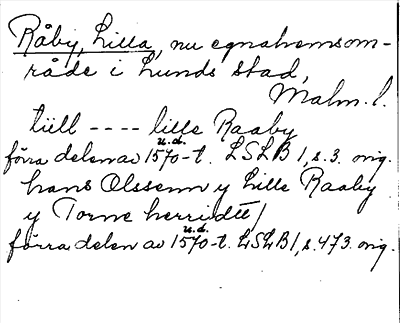 Råby, Lilla, nu egnahemsom-
råde i Lunds stad,
Malm. l.
tiill ---- lille Raaby
u.d.
förra delen av 1570-t. LSLB 1, s. 3. orig.
hans Olssenn y Lille Raaby
y Torne herridtt/
u.d.
förra delen av 1570-t. LSLB 1, s. 473. orig.